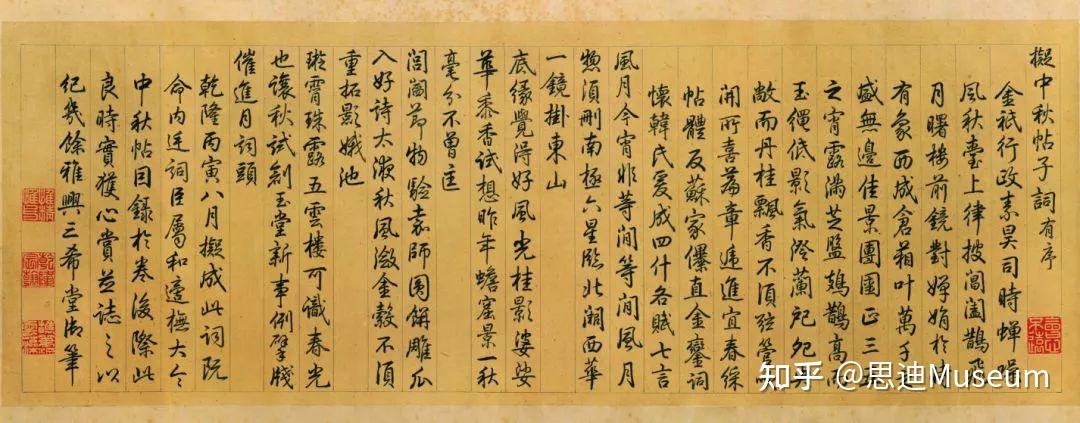 擬中秋帖子詞有序
金祇行政素昊司時蟬噪
風秋臺上律披閶闔鵲飛
月曙樓前鏡對嬋娟於
有象西成倉箱叶萬千
盛無邊佳景團圞正三
之宵露滿芝盤鳷鵲高
玉繩低影氣冷蘭戺
敞而丹桂飄香不須弦管
開所喜篇章遞進宜春綵
帖體反蘇家儤直金鑾詞
懷韓氏爰成四什各賦七言
風月今宵非等閒等閒風月
揔須刪南極六星臨北闕西華
一鏡掛東山
底緣覺得好風光桂影婆娑
華黍香試想昨年蟾窟景一秋
毫分不曾
閶闔節物驗京師團餅雕瓜
入好詩太液秋風瀲金縠不須
重拓影娥池
璇霄珠露五雲樓可識春光
也讓秋試創玉堂新事例擘牋
催進月詞頭
乾隆丙寅八月擬成此詞既
命內廷詞臣屬和邊橅大令
中秋帖因錄於卷後際此
良時實獲心賞並誌之以
紀幾餘雅興三希堂御筆
知乎 @思迪Museum